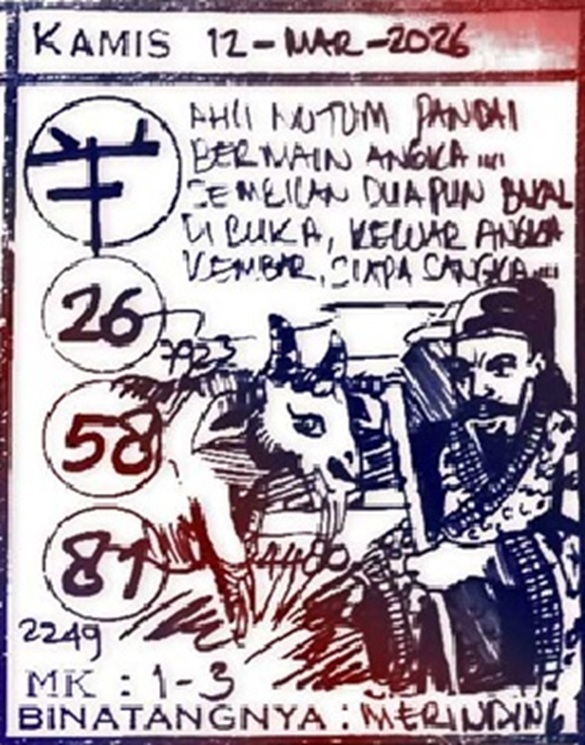 KAMIS 12-MAR-2026
羊
AHLI NUTUM PANDAI
BERMAIN ANGKA ....
SEMBILAN DUAPUN BAKAL
DI BUKA, KELUAR ANGKA
KEMBAR, SIAPA SANGKA....
26
7923
58
81
4480
2249
MK : 1-3
BINATANGNYA : MERINDING